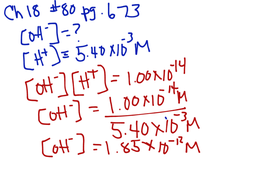 Ch 18 #80 pg. 673
[OH⁻] = ?
[H⁺] = 5.40 × 10⁻³ M
[OH⁻][H⁺] = 1.00 × 10⁻¹⁴
[OH⁻] = 1.00 × 10⁻¹⁴ M
5.40 × 10⁻³ M
[OH⁻] = 1.85 × 10⁻¹² M